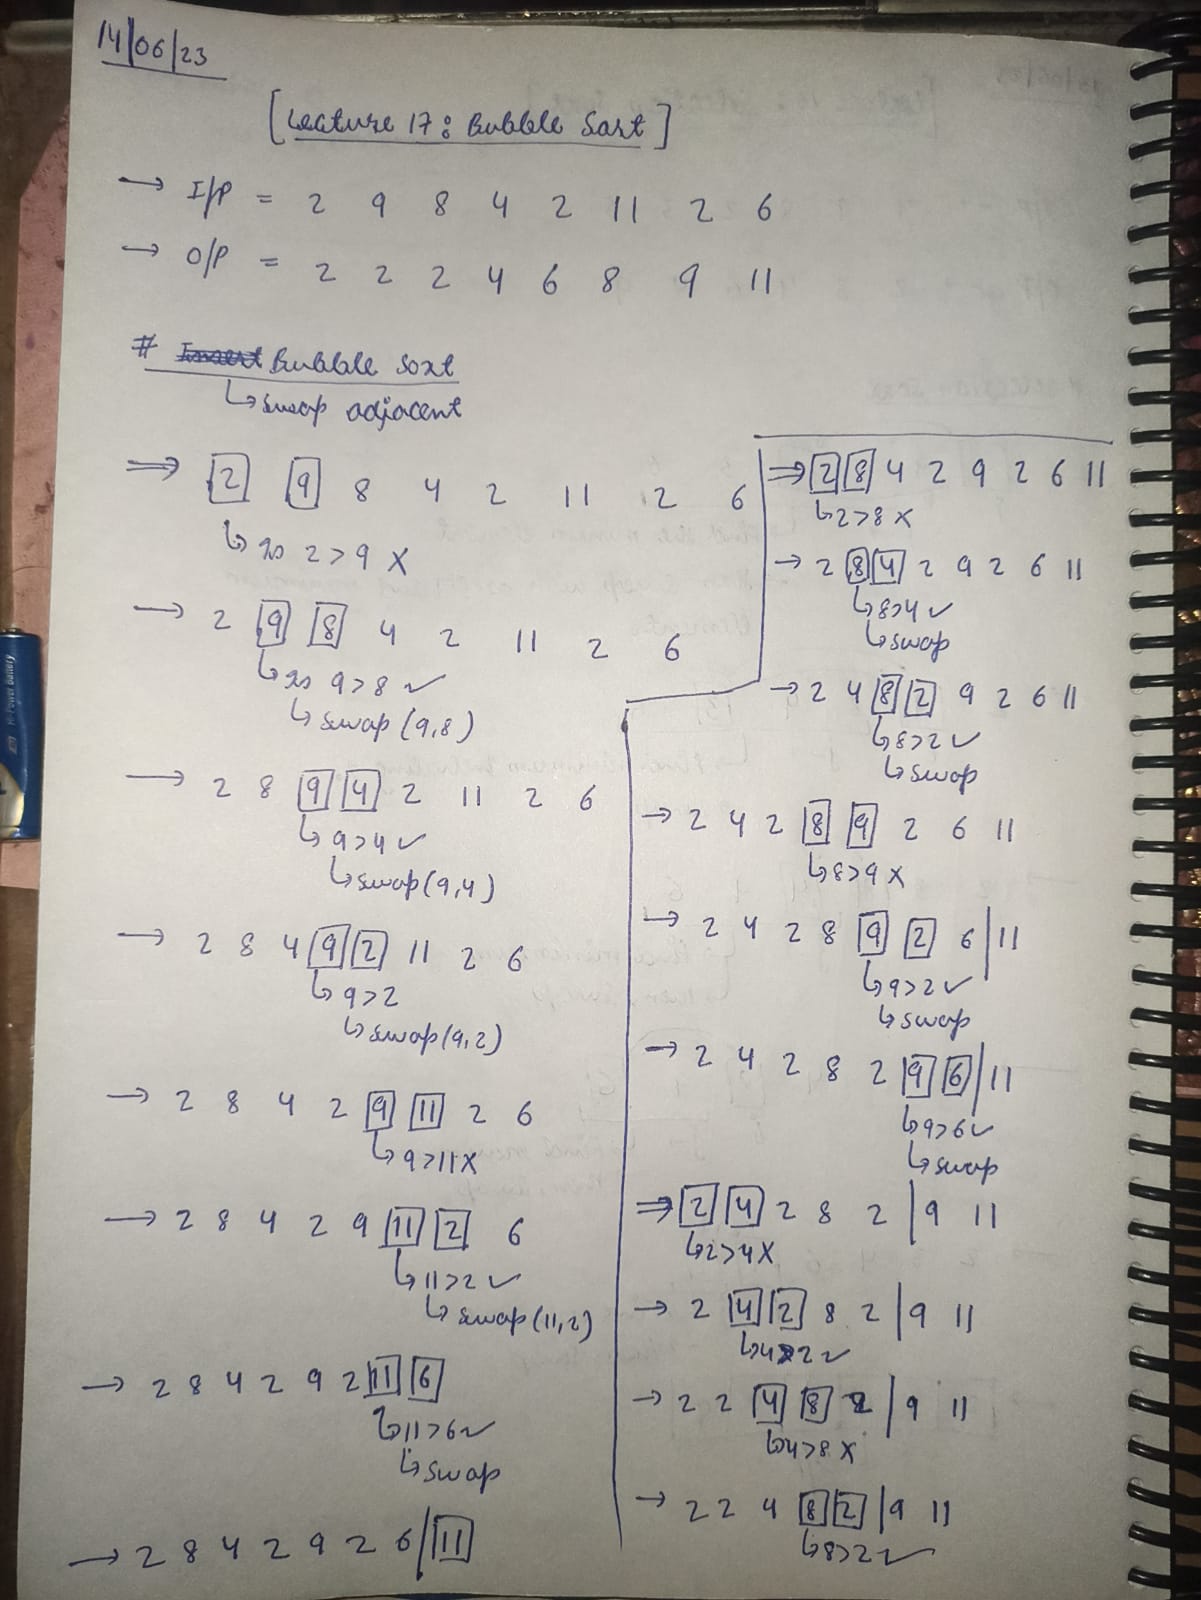 14/06/23
[Lecture 17: Bubble Sort]
→ I/P = 2 9 8 4 2 11 2 6
→ O/P = 2 2 2 4 6 8 9 11
# Insert Bubble Sort
↳ swap adjacent
⇒ 2 9 8 4 2 11 2 6
↳ is 2>9 X
→ 2 9 8 4 2 11 2 6
↳ is 9>8 ✓
↳ swap (9,8)
→ 2 8 9 4 2 11 2 6
↳ 9>4 ✓
↳ swap(9,4)
→ 2 8 4 9 2 11 2 6
↳ 9>2
↳ swap(9,2)
→ 2 8 4 2 9 11 2 6
↳ 9>11 X
→ 2 8 4 2 9 11 2 6
↳ 11>2 ✓
↳ swap(11,2)
→ 2 8 4 2 9 2 11 6
↳ 11>6 ✓
↳ swap
→ 2 8 4 2 9 2 6 / 11
⇒ 2 8 4 2 9 2 6 11
↳ 2>8 X
→ 2 8 4 2 9 2 6 11
↳ 8>4 ✓
↳ swap
→ 2 4 8 2 9 2 6 11
↳ 8>2 ✓
↳ swap
→ 2 4 2 8 9 2 6 11
↳ 8>9 X
→ 2 4 2 8 9 2 6 | 11
↳ 9>2 ✓
↳ swap
→ 2 4 2 8 2 9 6 | 11
↳ 9>6 ✓
↳ swap
⇒ 2 4 2 8 2 | 9 11
↳ 2>4 X
→ 2 4 2 8 2 | 9 11
↳ 4>2 ✓
→ 2 2 4 8 2 | 9 11
↳ 4>8 X
→ 2 2 4 8 2 | 9 11
↳ 8>2 ✓